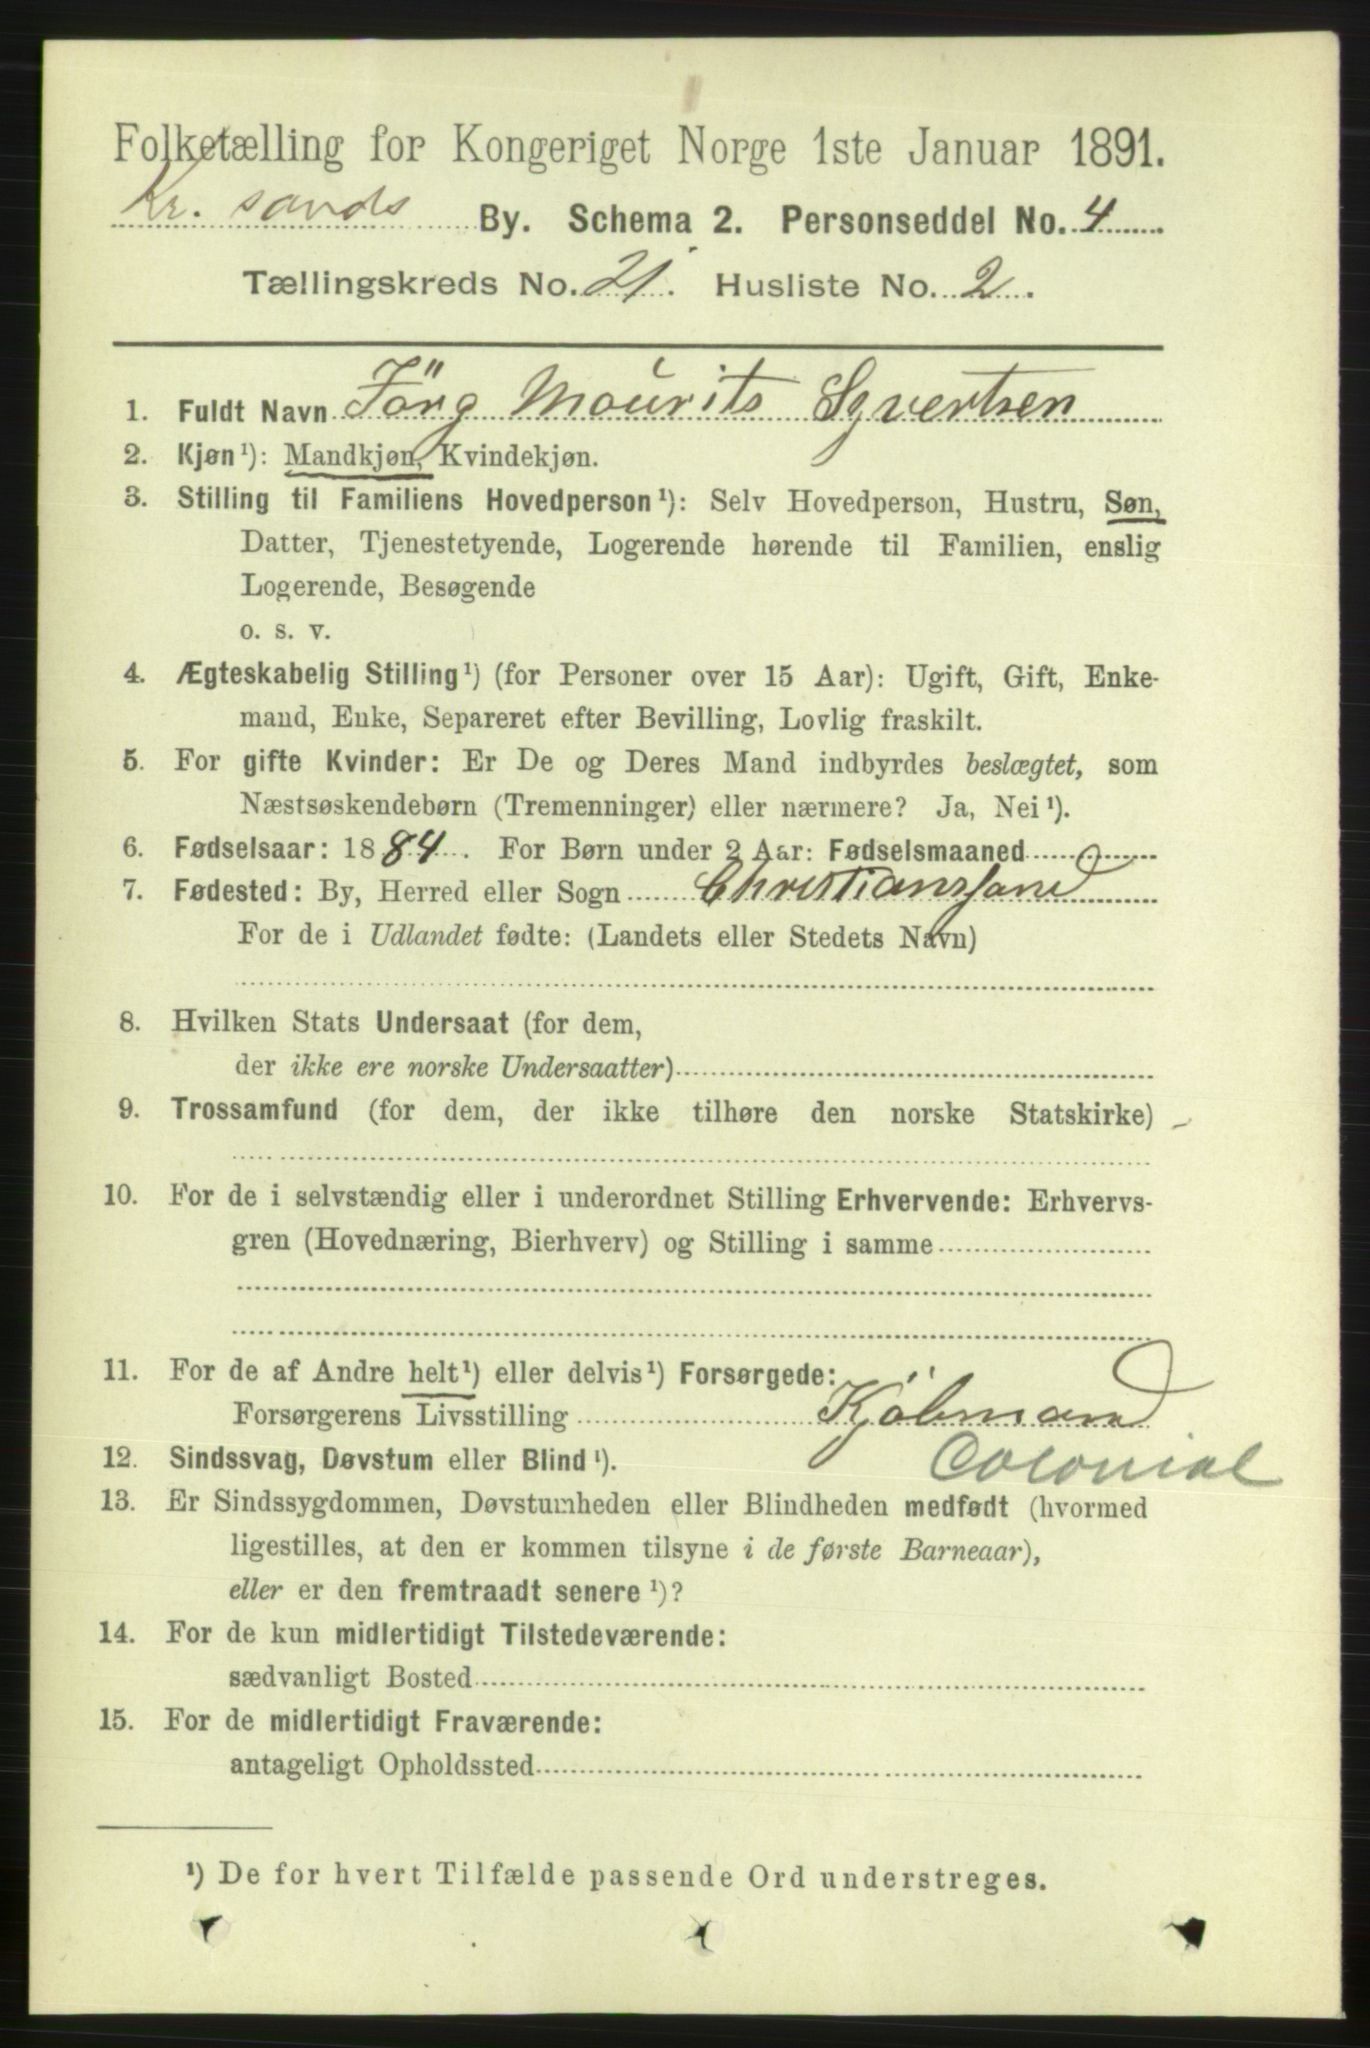 Folketælling for Kongeriget Norge 1ste Januar 1891.
Kr. sands By. Schema 2. Personseddel No. 4
Tællingskreds No. 21. Husliste No. 2
1. Fuldt Navn Jörg Mourits Syvertsen
2. Kjøn¹): Mandkjøn, Kvindekjøn.
3. Stilling til Familiens Hovedperson¹): Selv Hovedperson, Hustru, Søn,
Datter, Tjenestetyende, Logerende hørende til Familien, enslig
Logerende, Besøgende
o. s. v.
4. Ægteskabelig Stilling¹) (for Personer over 15 Aar): Ugift, Gift, Enke-
mand, Enke, Separeret efter Bevilling, Lovlig fraskilt.
5. For gifte Kvinder: Er De og Deres Mand indbyrdes beslægtet, som
Næstsøskendebørn (Tremenninger) eller nærmere? Ja, Nei¹).
6. Fødselsaar: 1884. For Børn under 2 Aar: Fødselsmaaned
7. Fødested: By, Herred eller Sogn Christianssand
For de i Udlandet fødte: (Landets eller Stedets Navn)
8. Hvilken Stats Undersaat (for dem,
der ikke ere norske Undersaatter)
9. Trossamfund (for dem, der ikke tilhøre den norske Statskirke) -
10. For de i selvstændig eller i underordnet Stilling Erhvervende: Erhvervs-
gren (Hovednæring, Bierhverv) og Stilling i samme
11. For de af Andre helt¹) eller delvis¹) Forsørgede:
Forsørgerens Livsstilling Kjöbmand
Colonial
12. Sindssvag, Døvstum eller Blind¹).
13. Er Sindssygdommen, Døvstumheden eller Blindheden medfødt (hvormed
ligestilles, at den er kommen tilsyne i de første Barneaar),
eller er den fremtraadt senere¹)?
14. For de kun midlertidigt Tilstedeværende:
sædvanligt Bosted
15. For de midlertidigt Fraværende:
antageligt Opholdssted
¹) De for hvert Tilfælde passende Ord understreges.